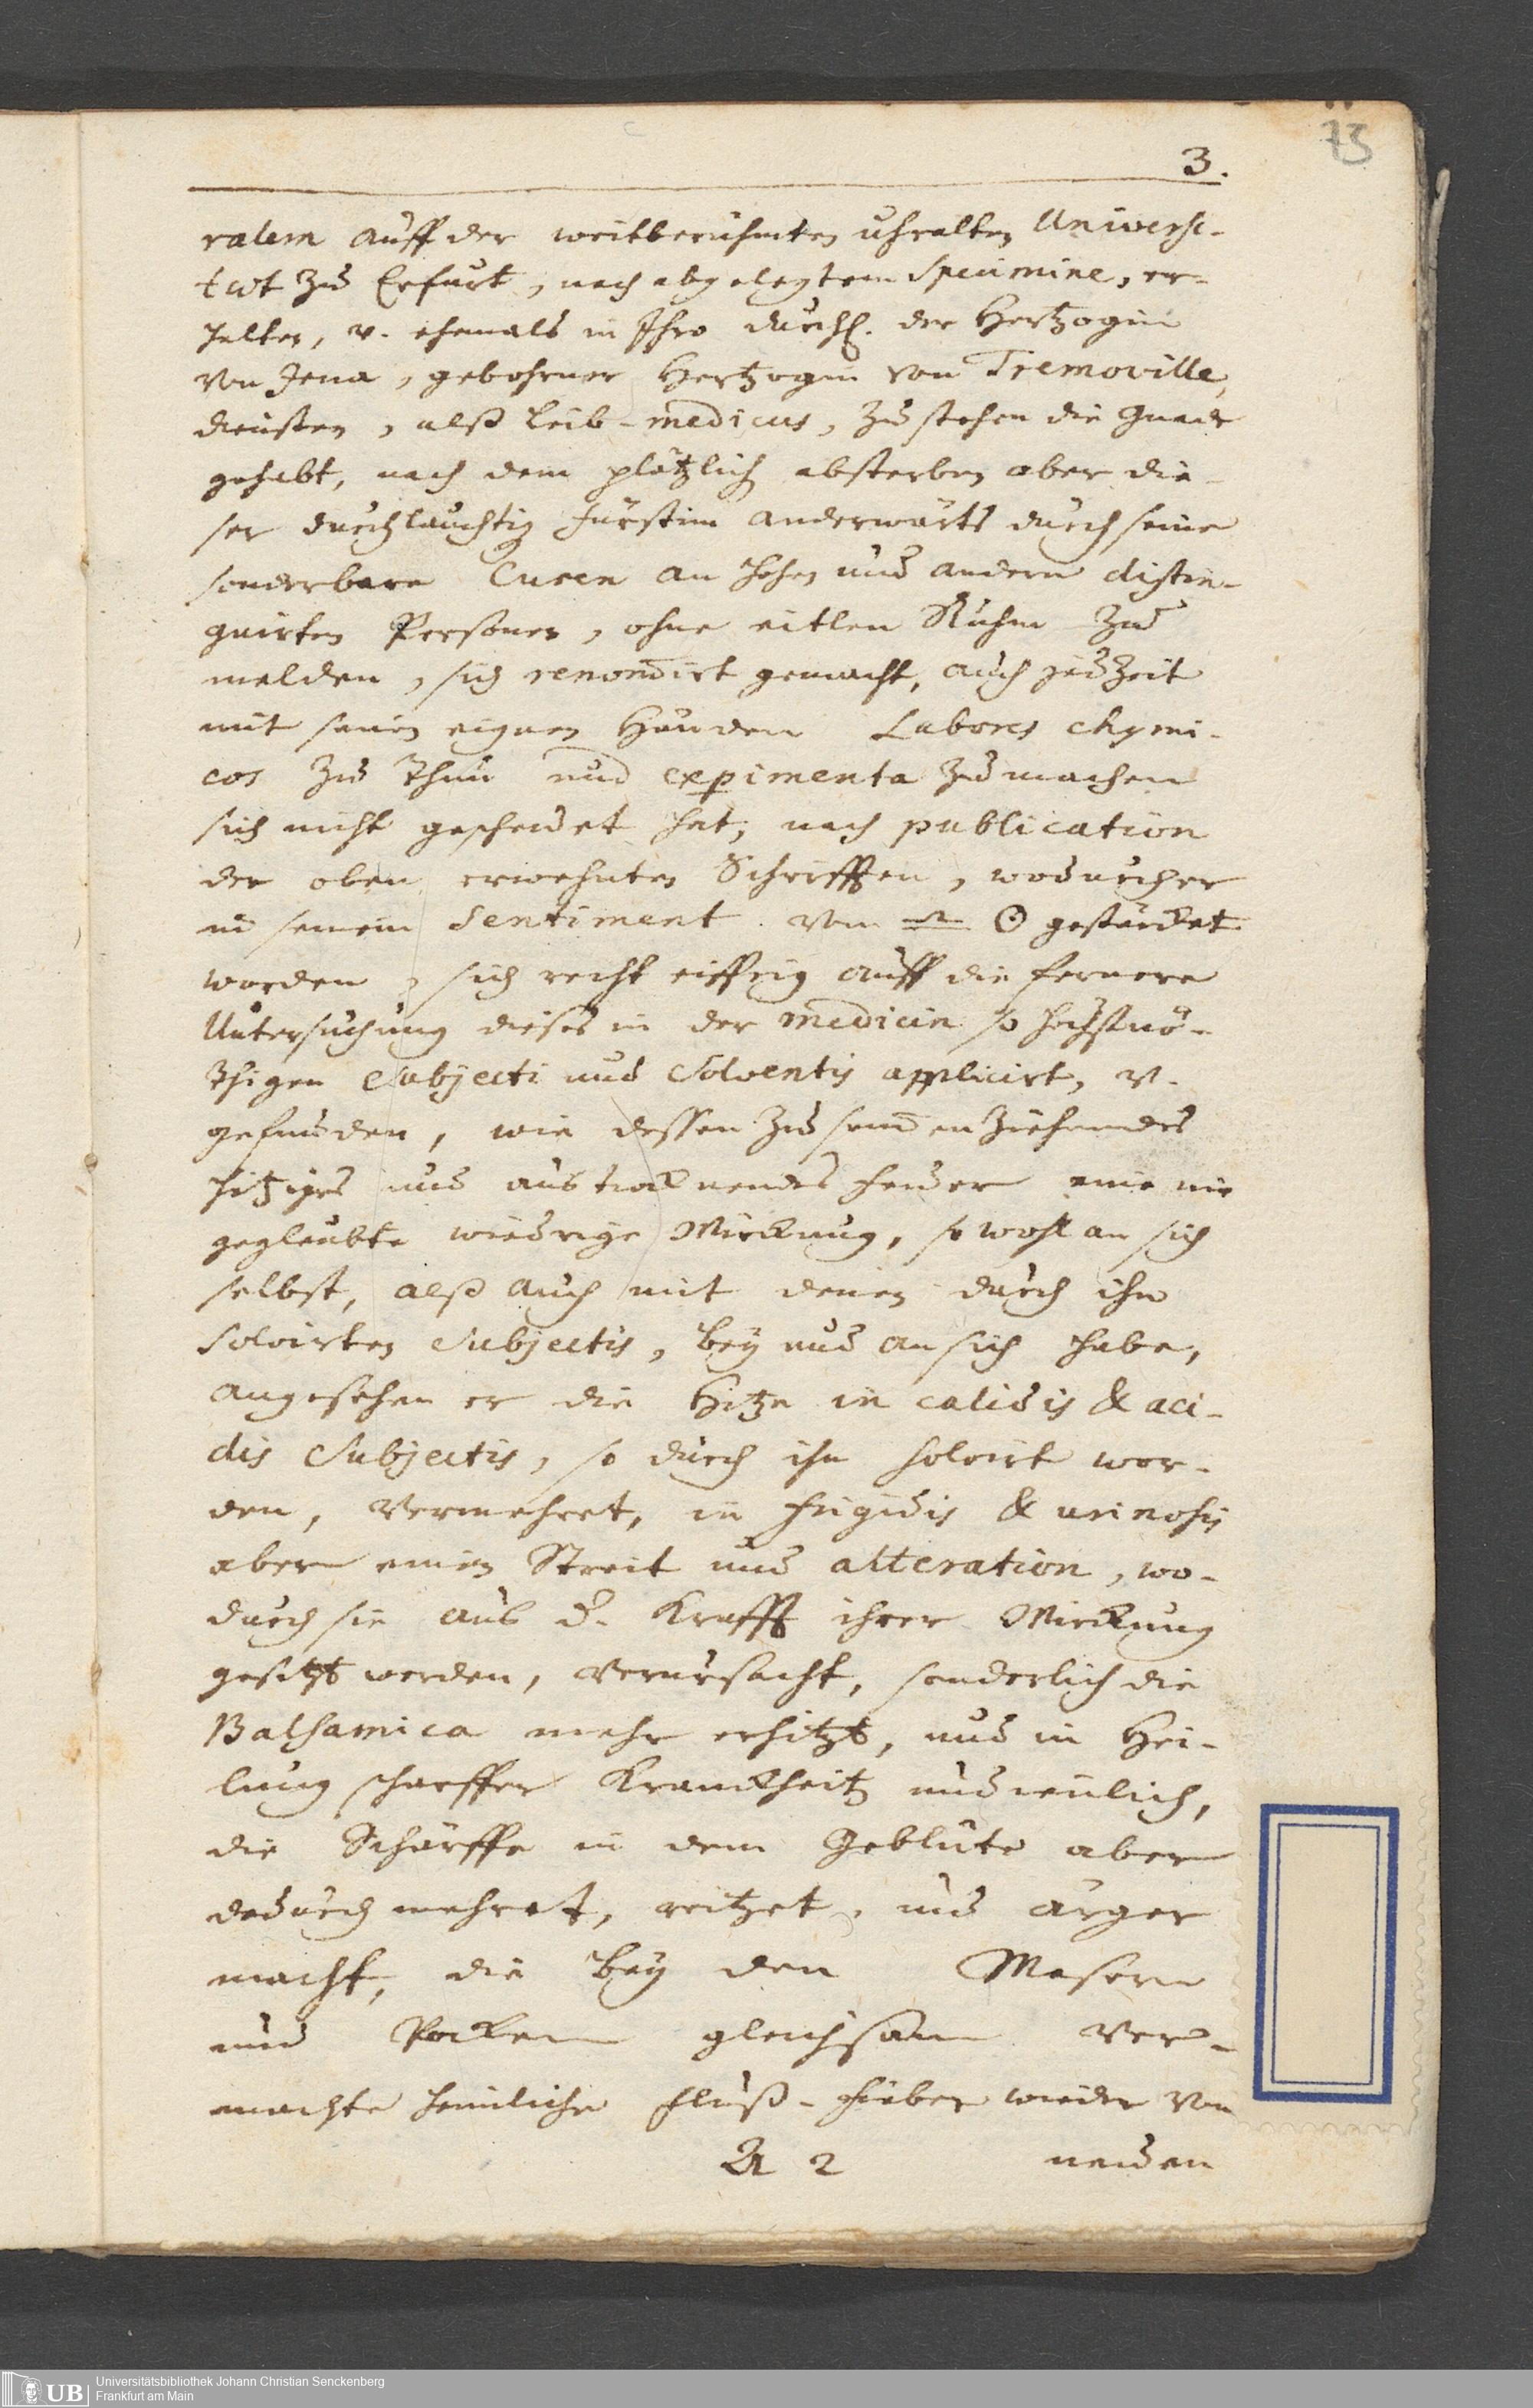 73
3.
ralem auff der weitberühmten uhralten Universi-
tæt zu Erfurt, nach abgelegtem Specimine, er-
halten, v. ehemals in Ihro Durchl. der Hertzogin
von Jena, gebohrner Hertzogin von Tremoville,
diensten, alß Leib-medicus, zu stehen die Gnade
gehabt, nach dem plötzlich absterben aber die-
ser durchlauchtig Fürstin anderwärts durch seine
sonderbare Curen an hohen und andern distin-
guirten Personen, ohne eitlen Ruhm zu
melden, sich renom̄irt gemacht, auch jedzeit
mit seinen eignen Händen Labores chymi-
cos zu thun und expimenta zu machen
sich nicht gescheuet hat, nach publication
der oben erwehnten Schrifften, wodurch er
in seinem Sentiment vom ♎ ☉ gestärcket
worden, sich recht eiffrig auff die fernere
Untersuchung dieses in der medicin so höchstnö-
thigen Subjecti und Solventis applicirt, v.
gefunden, wie dessen zusam̄enziehendes
hitziges und austrocknendes Feuer eine nie
geglaubte wiedrige Wirckung, so wohl an sich
selbst, alß auch mit denen durch ihn
solvirten Subjectis, bey und an sich habe,
angesehen er die Hitze in calidis & aci-
dis Subjectis, so durch ihn solvirt wor-
den, vermehret, in frigidis & urinosis
aber einen Streit und alteration, wo-
durch sie aus d. Krafft ihrer Wirckung
gesetzt werden, verursacht, sonderlich die
Balsamica mehr erhitzt, und in Hei-
lung scharffer Kranckheit undienlich,
die Schärffe in dem Geblüte aber
dadurch mehret, reitzet, und ärger
macht, die bey den Masern
und Pocken gleichsam ver-
machte heimliche Fluß-Fieber wieder von
A 2 neuen
UB Universitätsbibliothek Johann Christian Senckenberg
Frankfurt am Main